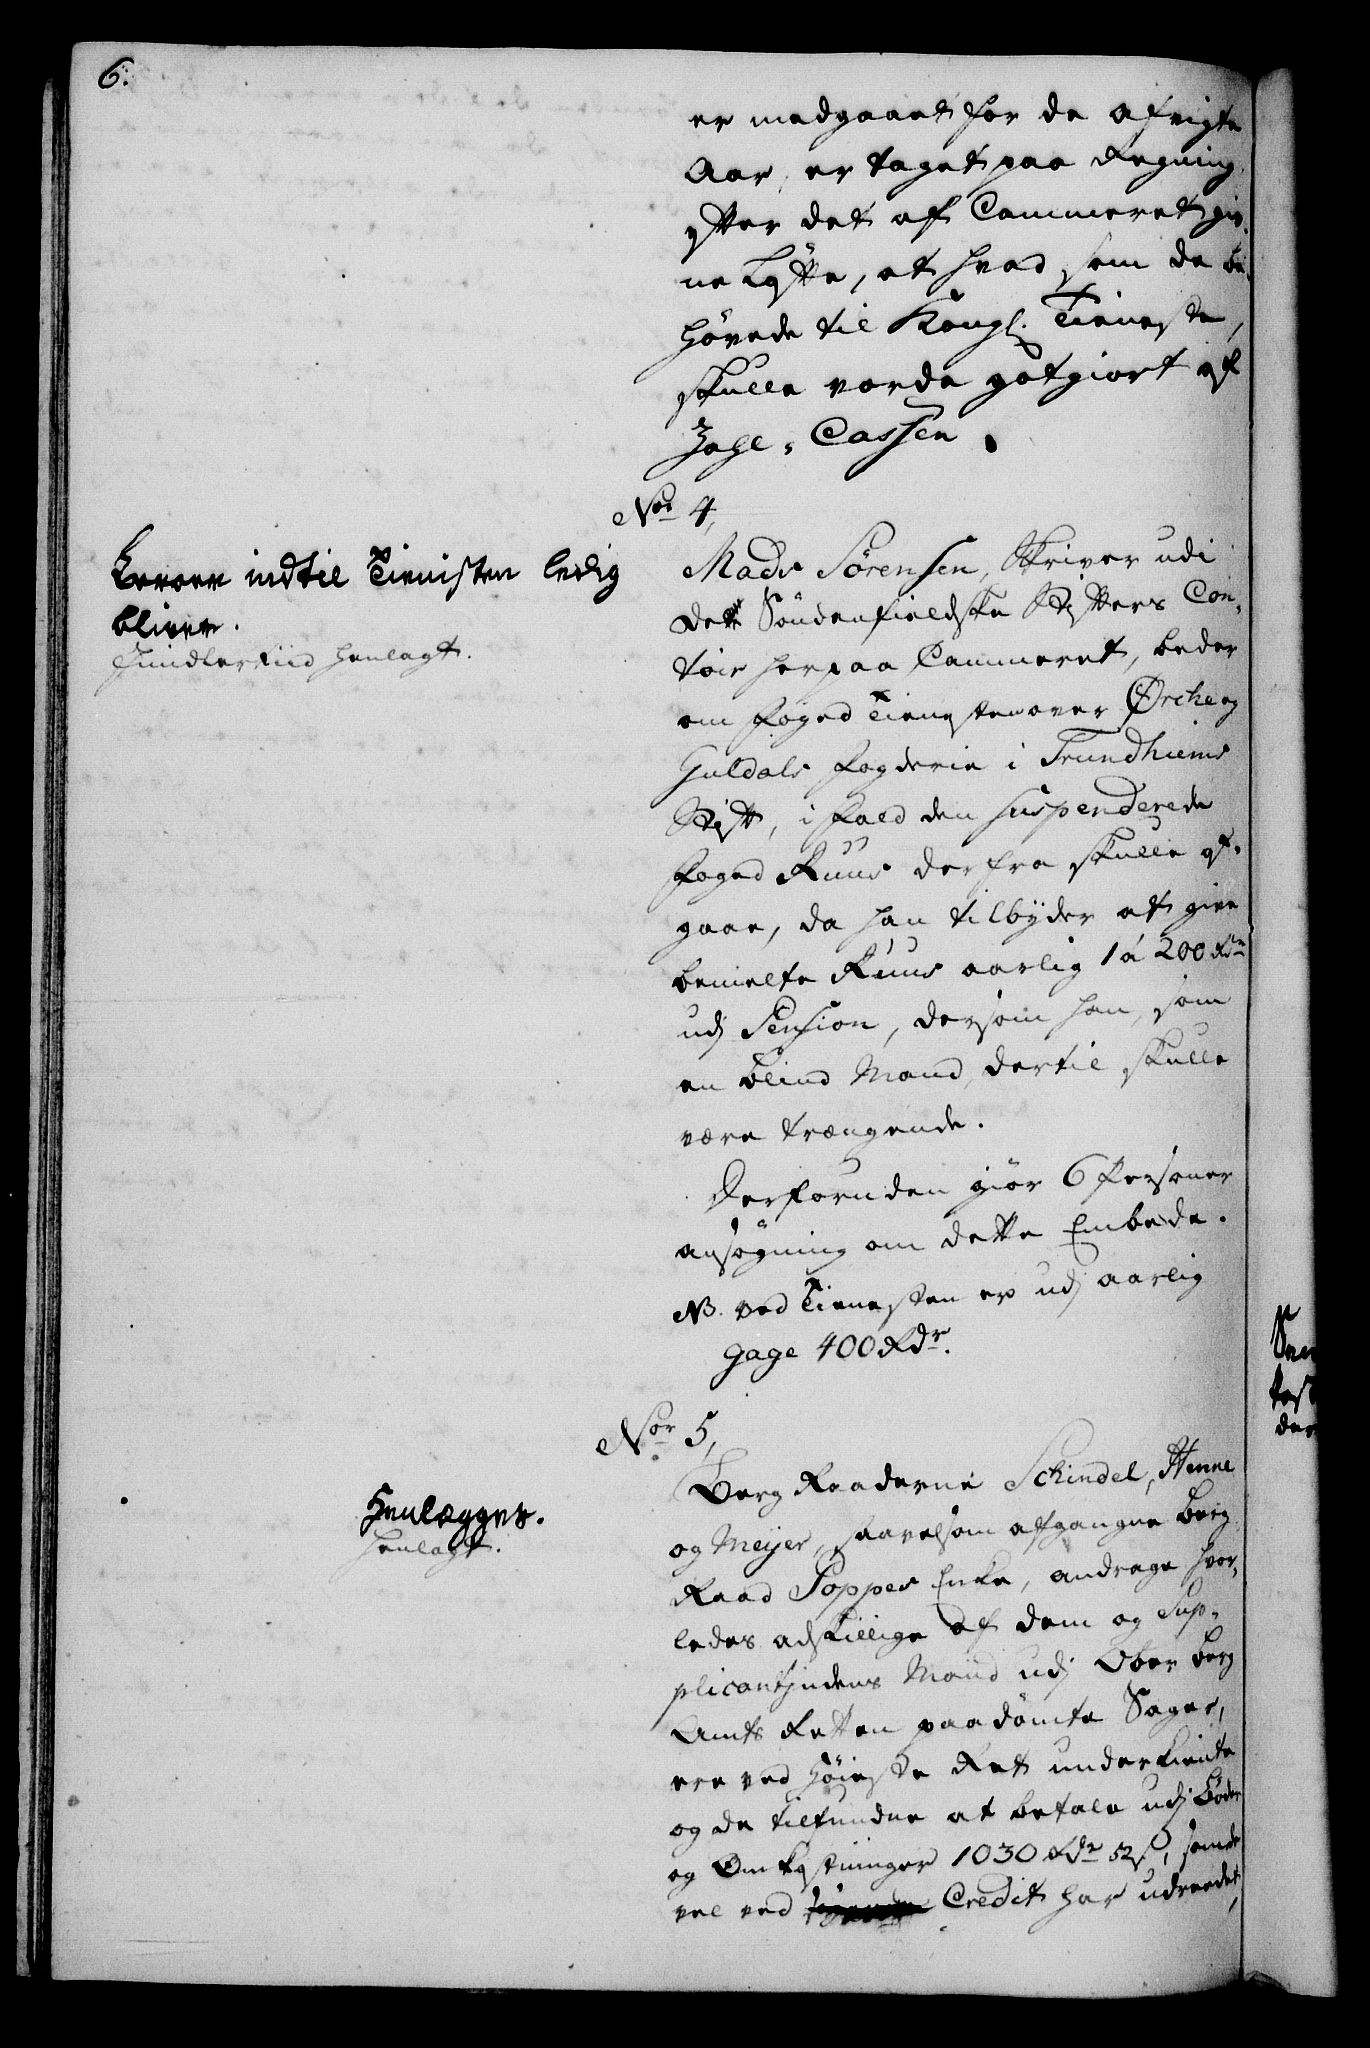 6.
er medgaaet for de afvigte
Aar, er taget paa Regning
efter det af Cammeret giv„
ne Løfte, at hvad som de be„
høvede til Kongl. Tieneste,
skulle vorde gotgiort af
Zahl-Cassen.
Nor 4,
indtil Tienisten ledig
bliver.
Imidlertiid henlagt.
Mads Sørensen, Skriver udi
det Søndenfieldske Stifters Con„
toir her paa Cammeret, beder
om Foged Tienesten over Ørche og
Guldals Fogderie i Trundhiems
Stift, i fald den suspenderede
Foged Ruus derfra skulle af„
gaae, da han tilbyder at give
bemelte Ruus aarlig 1 á 200 Rdr
udj Pension, dersom han, som
en blind Mand, dertil skulle
være trængende.
Desforuden giør 6 Personer
ansøgning om dette Embede.
NB. ved Tienesten er udj aarlig
Gage 400 Rdr.
Nor 5,
Henlægges.
henlagt.
Berg Raaderne Schindel, Henne
og Meyer, saavelsom afgangne Berg
Raad Poppes Enke, andrage hvor„
ledes adskillige af dem og Sup„
plicantindens Mand udj Ober Berg
Amts Retten paadømte Sager,
ere ved Høieste Ret underkiendte
og de tilfundne at betale udj Bøder
og Omkostninger 1030 Rdr 52 s, som de
vel ved Credit har udreedet,